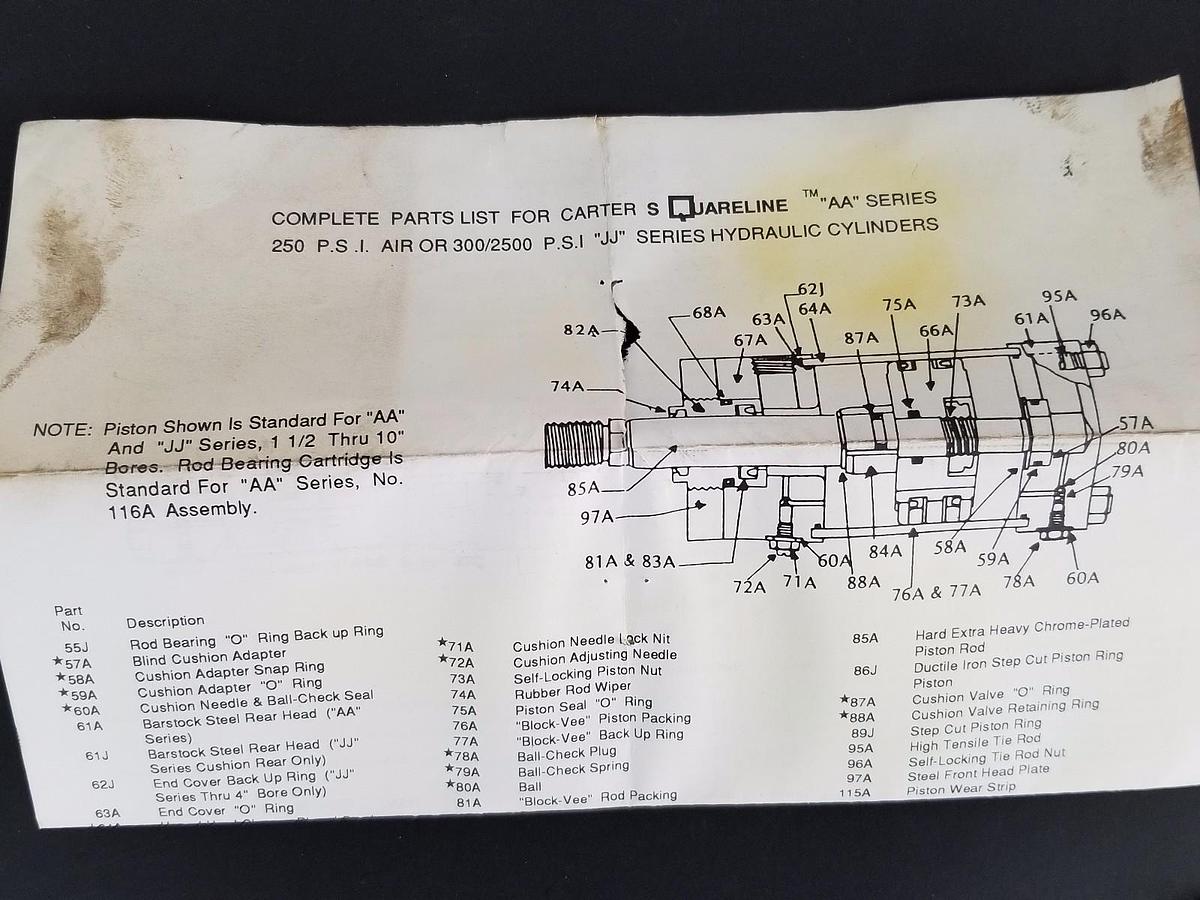 COMPLETE PARTS LIST FOR CARTER SQUARELINE ™ "AA" SERIES
250 P.S.I. AIR OR 300/2500 P.S.I "JJ" SERIES HYDRAULIC CYLINDERS
62J
95A
68A
63A
64A
75A
73A
61A
96A
82A
67A
87A
66A
74A
NOTE: Piston Shown Is Standard For "AA"
And "JJ" Series, 1 1/2 Thru 10"
Bores. Rod Bearing Cartridge Is
Standard For "AA" Series, No.
116A Assembly.
57A
80A
79A
85A
97A
81A & 83A
60A
84A
58A
59A
72A
71A
88A
76A & 77A
78A
60A
Part
No.
Description
55J Rod Bearing "O" Ring Back up Ring
★57A Blind Cushion Adapter
★58A Cushion Adapter Snap Ring
★59A Cushion Adapter "O" Ring
★60A Cushion Needle & Ball-Check Seal
61A Barstock Steel Rear Head ("AA"
Series)
61J Barstock Steel Rear Head ("JJ"
Series Cushion Rear Only)
62J End Cover Back Up Ring ("JJ"
Series Thru 4" Bore Only)
63A End Cover "O" Ring
★71A Cushion Needle Lock Nit
★72A Cushion Adjusting Needle
73A Self-Locking Piston Nut
74A Rubber Rod Wiper
75A Piston Seal "O" Ring
76A "Block-Vee" Piston Packing
77A "Block-Vee" Back Up Ring
★78A Ball-Check Plug
★79A Ball-Check Spring
★80A Ball
81A "Block-Vee" Rod Packing
85A Hard Extra Heavy Chrome-Plated
Piston Rod
86J Ductile Iron Step Cut Piston Ring
Piston
★87A Cushion Valve "O" Ring
★88A Cushion Valve Retaining Ring
89J Step Cut Piston Ring
95A High Tensile Tie Rod
96A Self-Locking Tie Rod Nut
97A Steel Front Head Plate
115A Piston Wear Strip